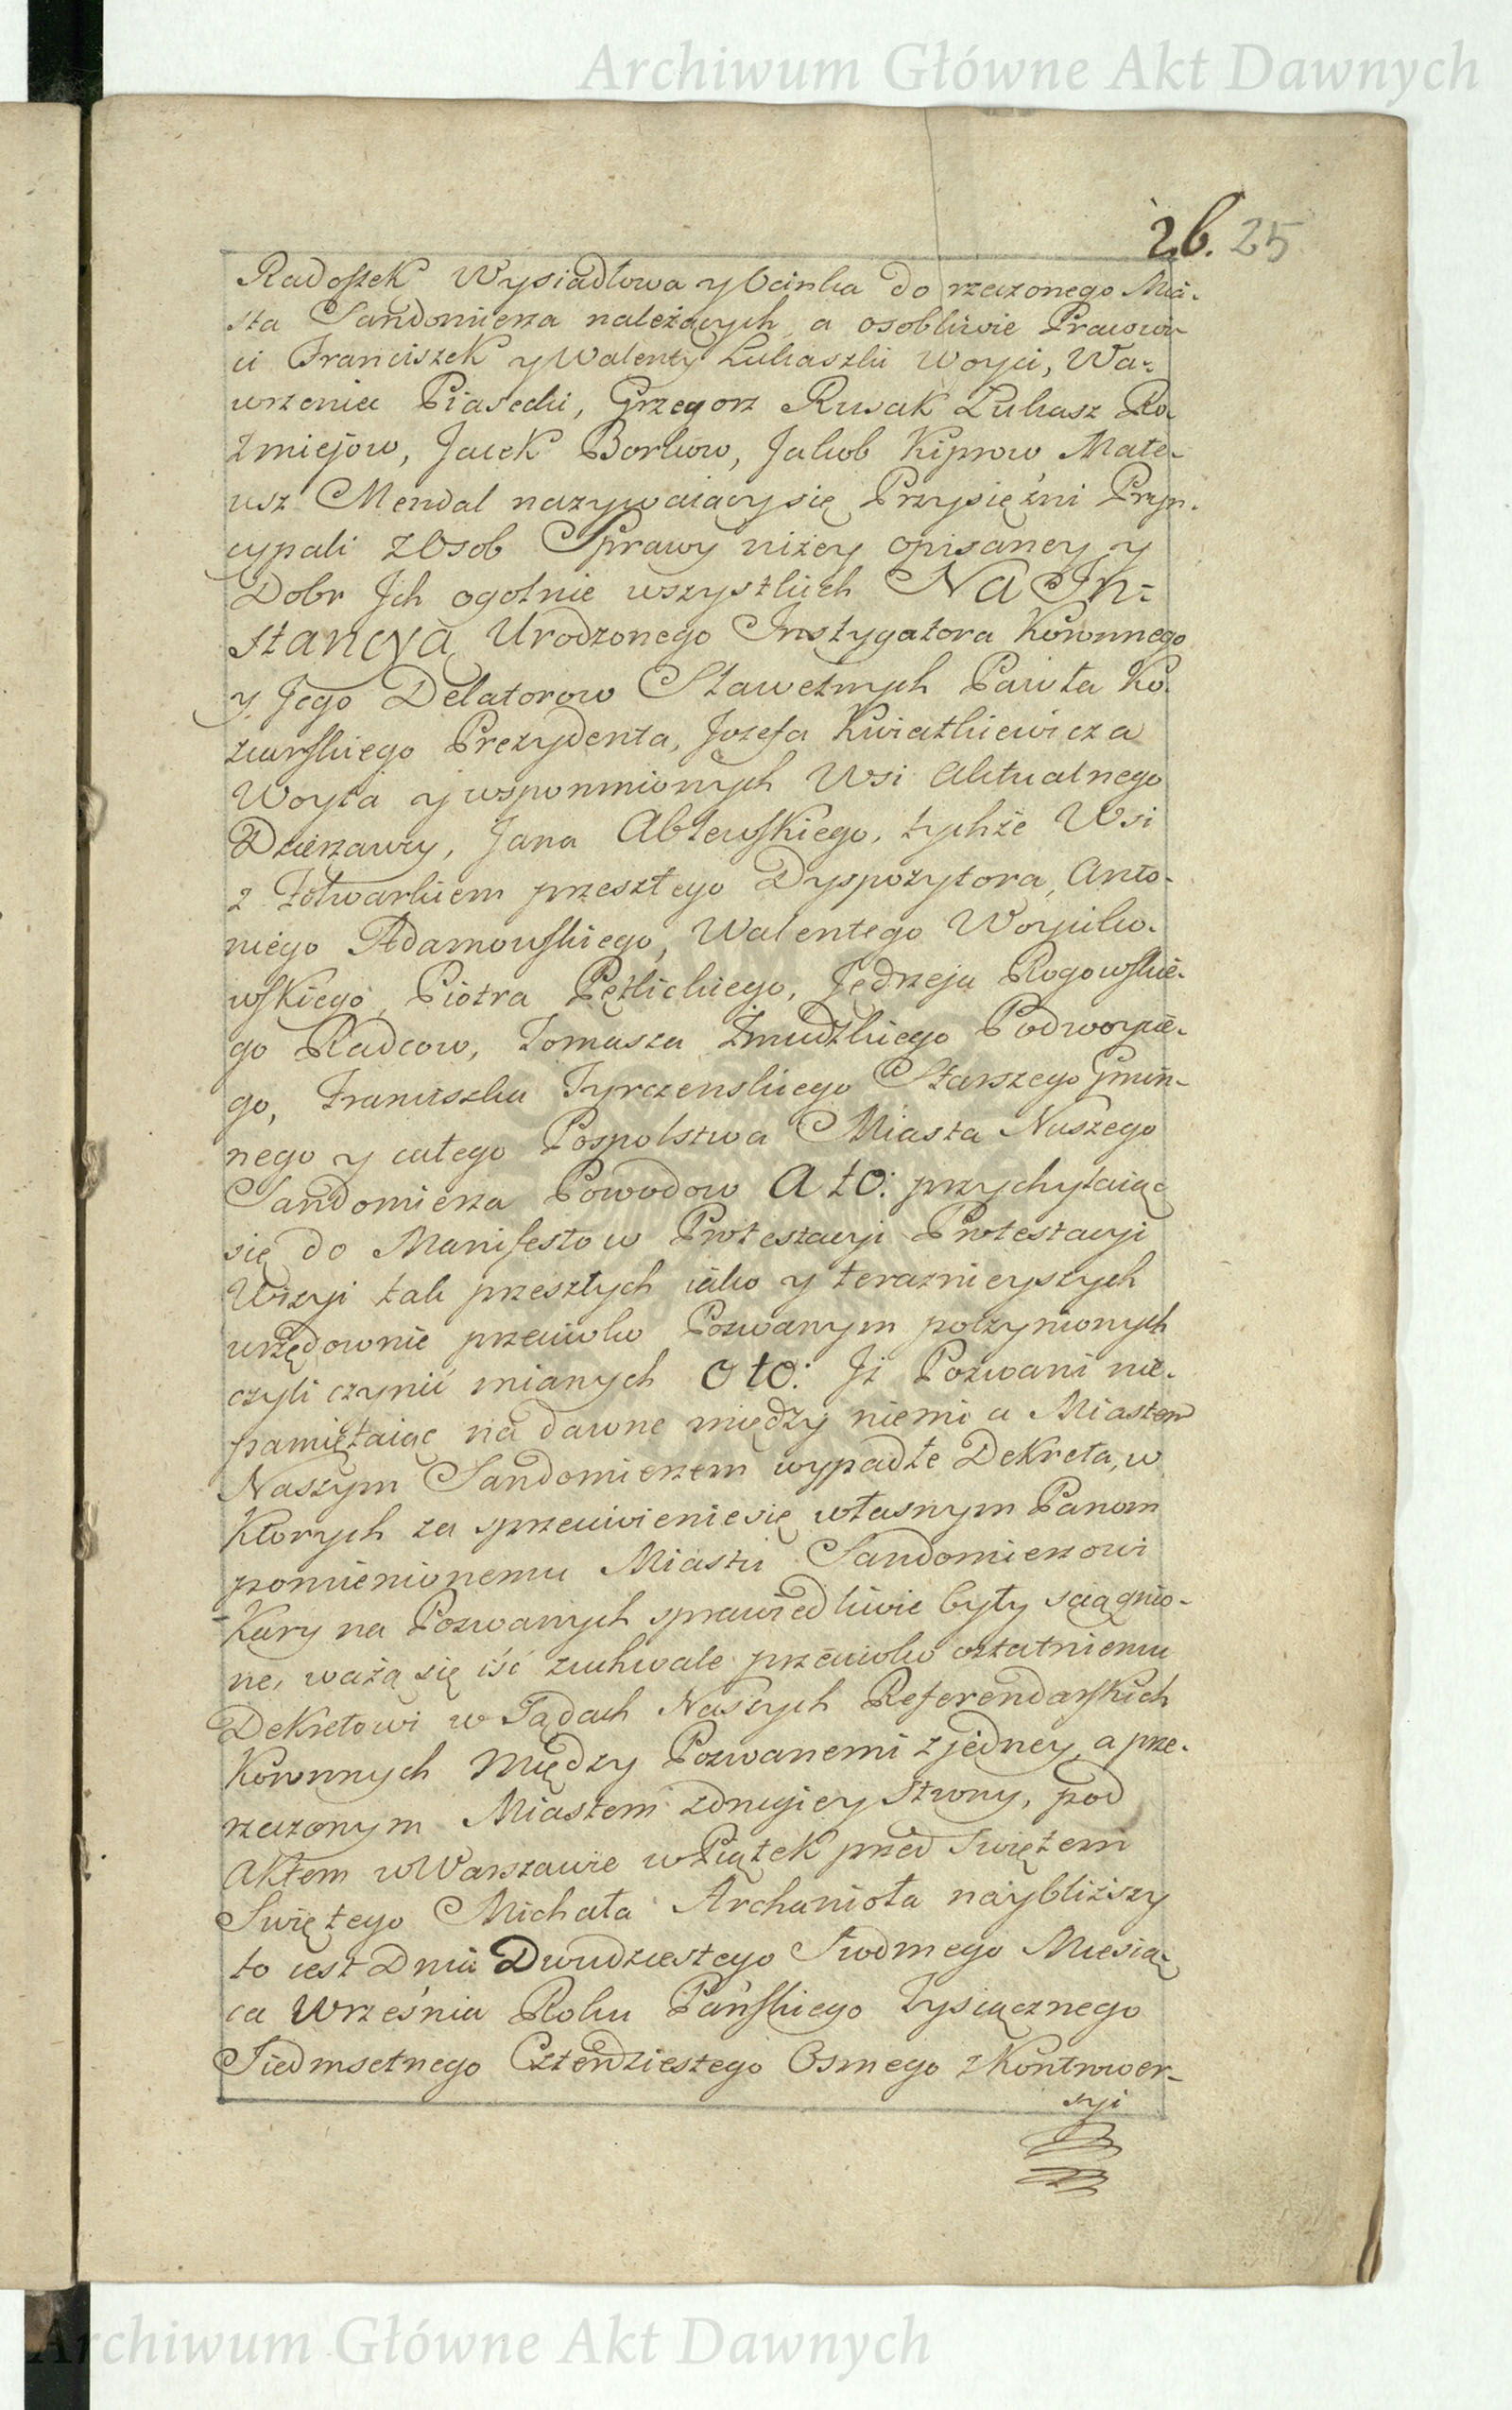 Archiwum Główne Akt Dawnych
26. 25
Radoszek Wysiadłowa y Ocinka do rzeczonego Mia-
sta Sandomierza należących a osobliwie Pracowi-
ci Franciszek y Walenty Lukaszki Woyci, Wa-
wrzeniec Piasecki, Grzegorz Rusak Lukasz Ro-
zmiejow, Jacek Borkow, Jakob Kiprow Mate-
usz Mendal nazywaiący się Przysiężni Pryn-
cypali z Osob Sprawy niżey opisaney y
Dobr Jch ogolnie wszystkich Na In-
stancyą Urodzonego Instygatora Koronnego
y Jego Delatorow Sławetnych Pawła Ko-
zurskiego Prezydenta, Jozefa Kwiatkiewicza
Woyta y wspomnionych Wsi Aktualnego
Dzierzawcy, Jana Ablewskiego, tychże Wsi
z Folwarkiem przeszłego Dyspozytora, Anto-
niego Adamowskiego, Walentego Woyciko-
wskiego, Piotra Pętlickiego, Jędrzeja Rogowskie-
go Radcow, Tomasza Żmudzkiego Podwoycie-
go, Franciszka Tyrczenskiego Starszego Gmin-
nego y całego Pospolstwa Miasta Naszego
Sandomierza Powodow A to: przychylaiąc
się do Manifestow Protestacyi Protestacyi
Wizyi tak przeszłych iako y teraznieyszych
urzędownie przeciwko Pozwanym poczynionych
czyli czynić mianych O to: Jż Pozwani nie-
pamiętaiąc na dawne między niemi a Miastem
Naszym Sandomierzem wypadłe Dekreta, w
Ktorych za sprzeciwienie się własnym Panom
pomienionemu Miastu Sandomierzowi
Kary na Pozwanych sprawiedliwie były sciągnio-
ne, ważą się iść zuchwale przeciwko ostatniemu
Dekretowi w Sądach Naszych Referendarskich
Koronnych Między Pozwanemi z jedney, a prze-
rzeczonym Miastem z drugiey strony, pod
Aktem w Warszawie w Piątek przed Swiętem
Swiętego Michała Archanioła naybliższy
to iest Dnia Dwudziestego Siodmego Miesią-
ca Września Roku Pańskiego Tysiącznego
Siedmsetnego Czterdziestego Osmego z Kontrower-
syi
Archiwum Główne Akt Dawnych